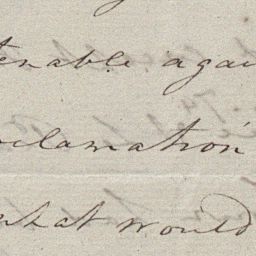 tenable agai
oclamation
what would